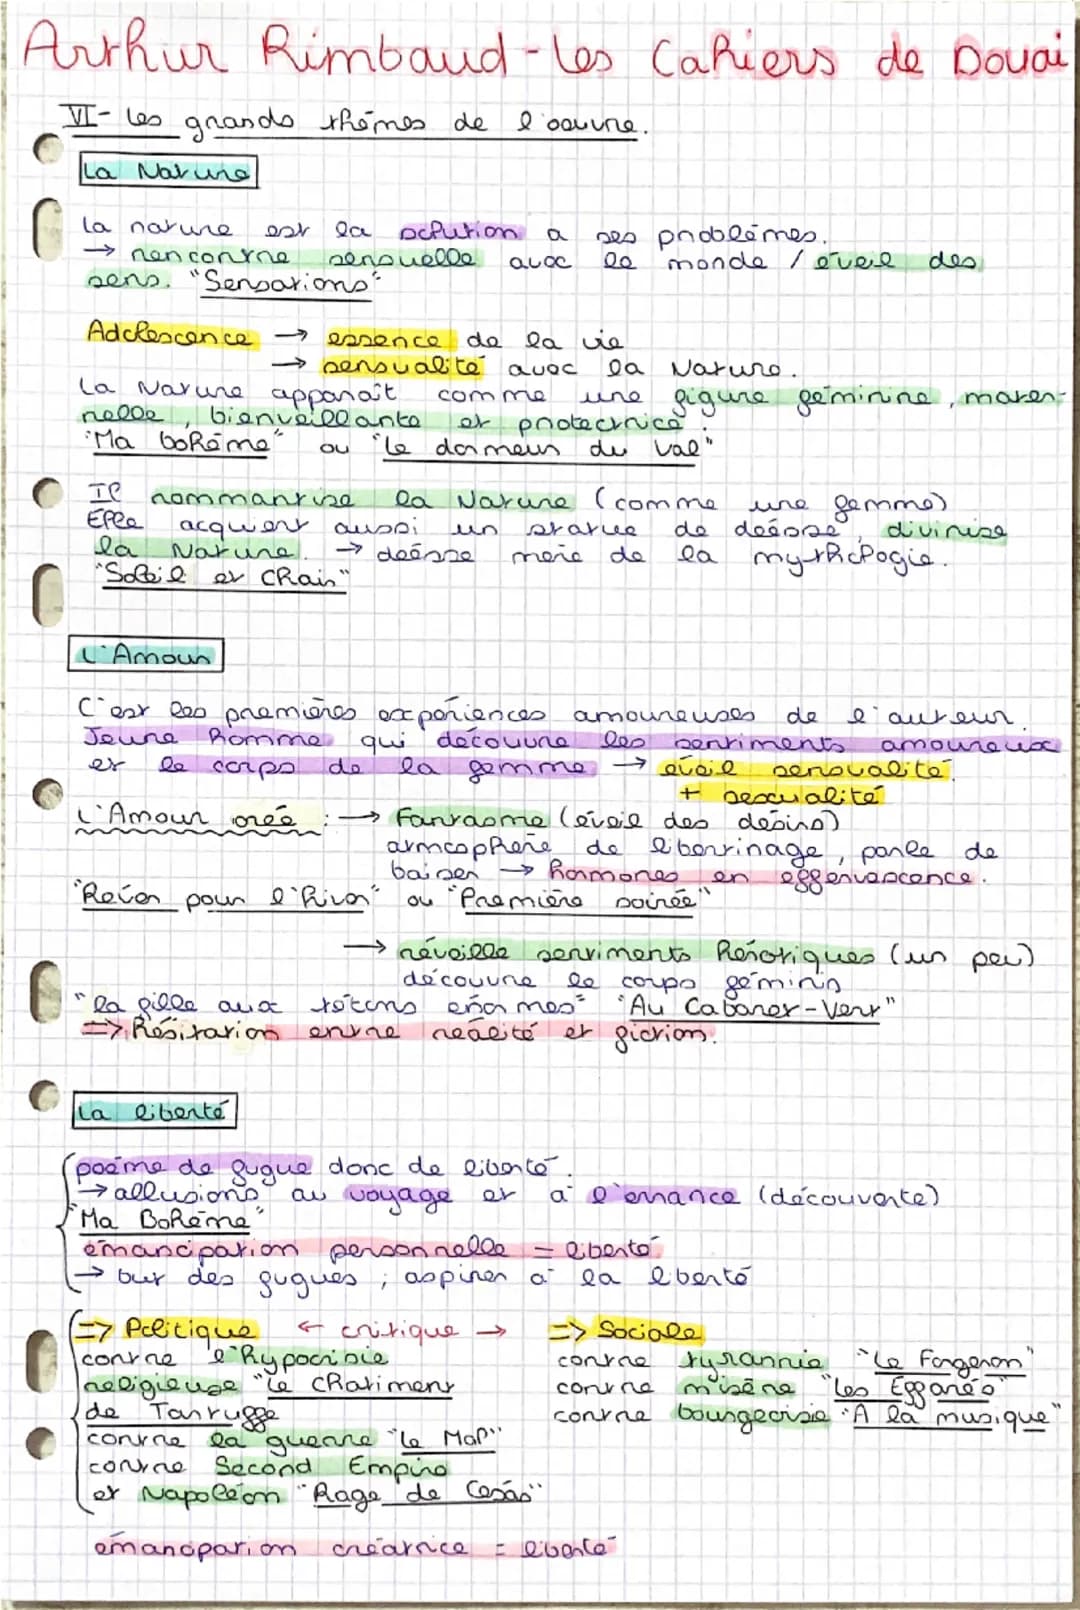 Arthur Rimbaud - Les Cahiers de Douai
VI- Les grands thèmes de l'oeuvre.
La Nature
La nature est la solution a ses problèmes.
→ rencontre sensuelle avec le monde / éveil des
sens. "Sensations"
Adolescence → essence de la vie
→ sensualité avec la Nature.
La Nature apparaît comme une figure féminine, mater-
nelle, bienveillante et protectrice.
"Ma bohème" ou "Le dormeur du Val"
Il nommantise la Nature (comme une femme)
Elle acquert aussi un statue de déesse, divinise
la Nature. → déesse mère de la mythologie.
"Soleil et Chair"
L'Amour
C'est les premières expériences amoureuses de l'auteur.
Jeune homme qui découvre les sentiments amoureux
et le corps de la femme → éveil sensualité
+ sexualité
L'Amour crée : → Fantasme (éveil des désirs)
atmosphère de libertinage, parle de
baiser → hormones en effervescence.
"Rêver pour l'hiver" ou "Première soirée"
→ réveille sentiments hérotiques (un peu)
découvre le corps féminin
"la fille aux tétons énormes" "Au Cabaret-Vert"
=> hésitation entre réalité et fiction.
La liberté
poème de fugue donc de liberté.
→ allusions au voyage et à l'errance (découverte)
"Ma Bohème"
émancipation personnelle = liberté
→ but des fugues ; aspirer à la liberté
=> Politique ← critique → => Sociale
contre l'hypocrisie contre tyrannie "Le Forgeron"
religieuse "Le Chatiment contre misère "Les Effarés"
de Tartuffe contre bourgeoisie "A la musique"
contre la guerre "Le Mal"
contre Second Empire
et Napoléon "Rage de Césas"
émancipation créatrice = liberté